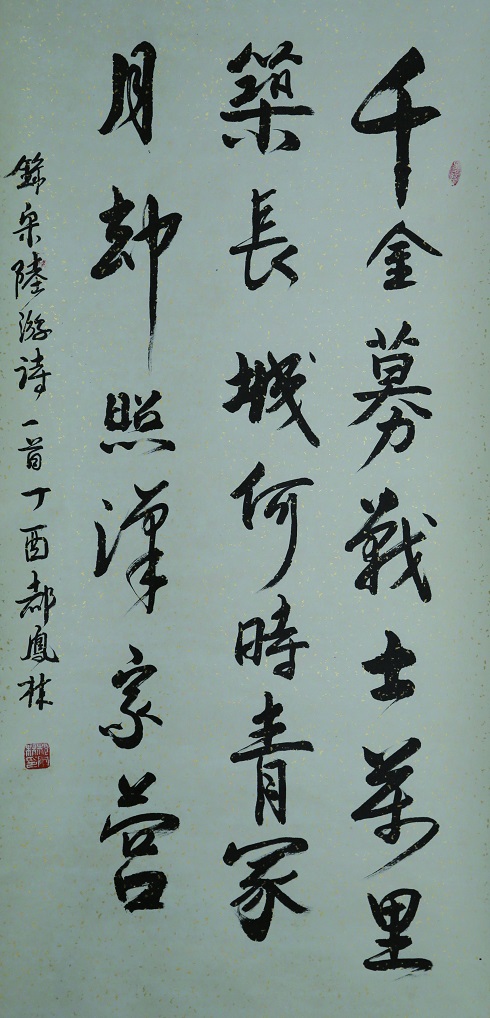 千金募戰士萬里
築長城何時青冢
月却照漢家營
錄宋陸游詩一首丁酉郝鳳林